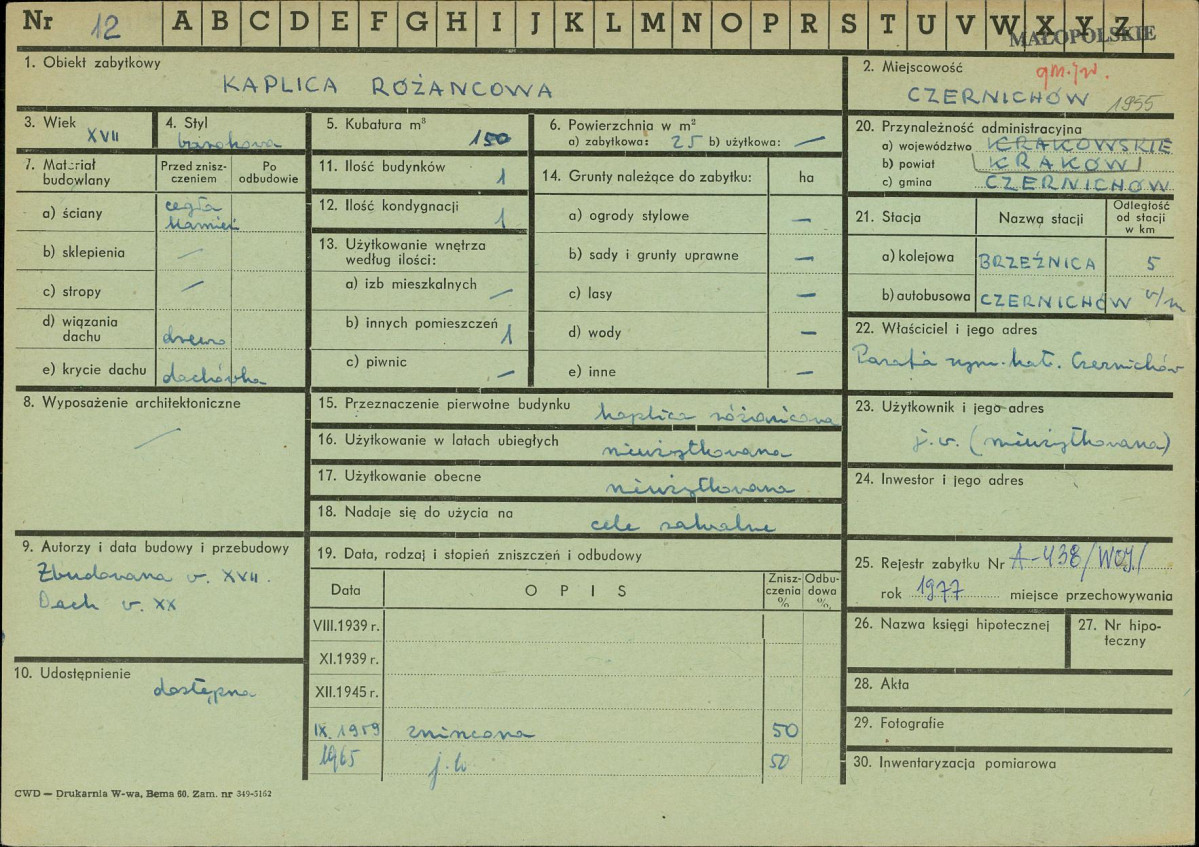 Nr 12 A B C D E F G H I J K L M N O P R S T U V W X Y Z
MAŁOPOLSKIE
1. Obiekt zabytkowy
KAPLICA RÓŻAŃCOWA
2. Miejscowość
gm. jw.
CZERNICHÓW 1955
3. Wiek
XVII
4. Styl
barokowa
5. Kubatura m³
150
6. Powierzchnia w m²
a) zabytkowa: 25 b) użytkowa: —
7. Materiał budowlany
Przed zniszczeniem
Po odbudowie
a) ściany cegła kamień
b) sklepienia —
c) stropy —
d) wiązania dachu drewno
e) krycie dachu dachówka
8. Wyposażenie architektoniczne
—
9. Autorzy i data budowy i przebudowy
Zbudowana w. XVII.
Dach w. XX
10. Udostępnienie
dostępna
11. Ilość budynków 1
12. Ilość kondygnacji 1
13. Użytkowanie wnętrza
według ilości:
a) izb mieszkalnych —
b) innych pomieszczeń 1
c) piwnic —
14. Grunty należące do zabytku: ha
a) ogrody stylowe —
b) sady i grunty uprawne —
c) lasy —
d) wody —
e) inne —
15. Przeznaczenie pierwotne budynku kaplica różańcowa
16. Użytkowanie w latach ubiegłych nieużytkowana
17. Użytkowanie obecne nieużytkowana
18. Nadaje się do użycia na cele sakralne
19. Data, rodzaj i stopień zniszczeń i odbudowy
Data OPIS Zniszczenia % Odbudowa %
VIII.1939 r.
XI.1939 r.
XII.1945 r.
IX.1959 zniszczona 50
1965 j.w 50
20. Przynależność administracyjna
a) województwo KRAKOWSKIE
b) powiat KRAKÓW
c) gmina CZERNICHÓW
21. Stacja Nazwa stacji Odległość od stacji w km
a) kolejowa BRZEŹNICA 5
b) autobusowa CZERNICHÓW w/m
22. Właściciel i jego adres
Parafia rzym. kat. Czernichów
23. Użytkownik i jego adres
j.w. (nieużytkowana)
24. Inwestor i jego adres
25. Rejestr zabytku Nr A-438/WOJ./
rok 1977 miejsce przechowywania
26. Nazwa księgi hipotecznej
27. Nr hipoteczny
28. Akta
29. Fotografie
30. Inwentaryzacja pomiarowa
CWD — Drukarnia W-wa, Bema 60. Zam. nr 349-5162